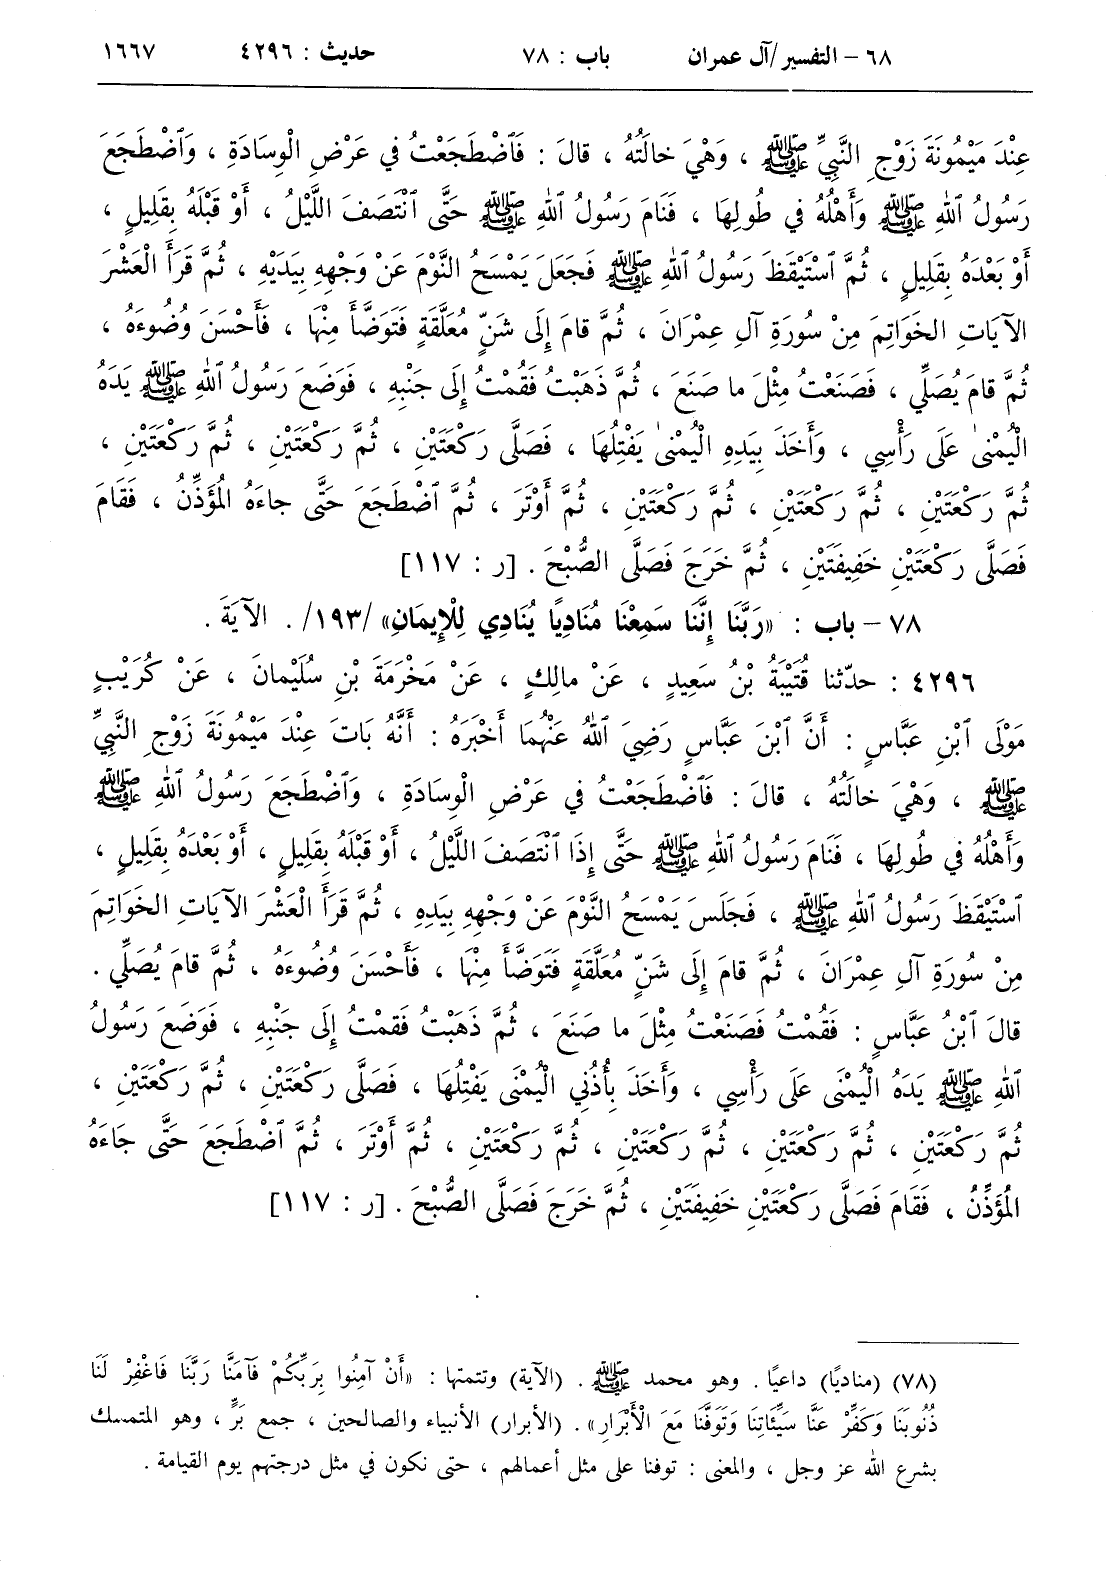 ٦٨ – التفسير/آل عمران باب : ٧٨ حديث : ٤٢٩٦ ١٦٦٧
عِنْدَ مَيْمُونَةَ زَوْجِ النَّبِيِّ ﷺ ، وَهْيَ خالَتُهُ ، قالَ : فَٱضْطَجَعْتُ في عَرْضِ الْوِسادَةِ ، وَٱضْطَجَعَ
رَسُولُ ٱللهِ ﷺ وَأَهْلُهُ في طُولِهَا ، فَنَامَ رَسُولُ ٱللهِ ﷺ حَتَّى ٱنْتَصَفَ اللَّيْلُ ، أَوْ قَبْلَهُ بِقَلِيلٍ ،
أَوْ بَعْدَهُ بِقَلِيلٍ ، ثُمَّ ٱسْتَيْقَظَ رَسُولُ ٱللهِ ﷺ فَجَعَلَ يَمْسَحُ النَّوْمَ عَنْ وَجْهِهِ بِيَدَيْهِ ، ثُمَّ قَرَأَ الْعَشْرَ
الآيَاتِ الخَوَاتِمَ مِنْ سُورَةِ آلِ عِمْرَانَ ، ثُمَّ قامَ إِلَى شَنٍّ مُعَلَّقَةٍ فَتَوَضَّأَ مِنْهَا ، فَأَحْسَنَ وُضُوءَهُ ،
ثُمَّ قامَ يُصَلِّي ، فَصَنَعْتُ مِثْلَ ما صَنَعَ ، ثُمَّ ذَهَبْتُ فَقُمْتُ إِلَى جَنْبِهِ ، فَوَضَعَ رَسُولُ ٱللهِ ﷺ يَدَهُ
الْيُمْنىٰ عَلَى رَأْسِي ، وَأَخَذَ بِيَدِهِ الْيُمْنىٰ يَفْتِلُهَا ، فَصَلَّى رَكْعَتَيْنِ ، ثُمَّ رَكْعَتَيْنِ ، ثُمَّ رَكْعَتَيْنِ ،
ثُمَّ رَكْعَتَيْنِ ، ثُمَّ رَكْعَتَيْنِ ، ثُمَّ رَكْعَتَيْنِ ، ثُمَّ أَوْتَرَ ، ثُمَّ ٱضْطَجَعَ حَتَّى جاءَهُ الْمُؤَذِّنُ ، فَقَامَ
فَصَلَّى رَكْعَتَيْنِ خَفِيفَتَيْنِ ، ثُمَّ خَرَجَ فَصَلَّى الصُّبْحَ . [ر : ١١٧]
٧٨ – باب : «رَبَّنَا إِنَّنَا سَمِعْنَا مُنَادِيًا يُنَادِي لِلْإِيمَانِ» /١٩٣/ . الآيَةَ .
٤٢٩٦ : حدّثنا قُتَيْبَةُ بْنُ سَعِيدٍ ، عَنْ مالِكٍ ، عَنْ مَخْرَمَةَ بْنِ سُلَيْمانَ ، عَنْ كُرَيْبٍ
مَوْلَى ٱبْنِ عَبَّاسٍ : أَنَّ ٱبْنَ عَبَّاسٍ رَضِيَ ٱللهُ عَنْهُمَا أَخْبَرَهُ : أَنَّهُ بَاتَ عِنْدَ مَيْمُونَةَ زَوْجِ النَّبِيِّ
ﷺ ، وَهْيَ خالَتُهُ ، قالَ : فَٱضْطَجَعْتُ في عَرْضِ الْوِسادَةِ ، وَٱضْطَجَعَ رَسُولُ ٱللهِ ﷺ
وَأَهْلُهُ في طُولِهَا ، فَنَامَ رَسُولُ ٱللهِ ﷺ حَتَّى إِذَا ٱنْتَصَفَ اللَّيْلُ ، أَوْ قَبْلَهُ بِقَلِيلٍ ، أَوْ بَعْدَهُ بِقَلِيلٍ ،
ٱسْتَيْقَظَ رَسُولُ ٱللهِ ﷺ ، فَجَلَسَ يَمْسَحُ النَّوْمَ عَنْ وَجْهِهِ بِيَدِهِ ، ثُمَّ قَرَأَ الْعَشْرَ الآيَاتِ الخَوَاتِمَ
مِنْ سُورَةِ آلِ عِمْرَانَ ، ثُمَّ قامَ إِلَى شَنٍّ مُعَلَّقَةٍ فَتَوَضَّأَ مِنْهَا ، فَأَحْسَنَ وُضُوءَهُ ، ثُمَّ قامَ يُصَلِّي .
قالَ ٱبْنُ عَبَّاسٍ : فَقُمْتُ فَصَنَعْتُ مِثْلَ ما صَنَعَ ، ثُمَّ ذَهَبْتُ فَقمْتُ إِلَى جَنْبِهِ ، فَوَضَعَ رَسُولُ
ٱللهِ ﷺ يَدَهُ الْيُمْنَى عَلَى رَأْسِي ، وَأَخَذَ بِأُذُنِي الْيُمْنَى يَفْتِلُهَا ، فَصَلَّى رَكْعَتَيْنِ ، ثُمَّ رَكْعَتَيْنِ ،
ثُمَّ رَكْعَتَيْنِ ، ثُمَّ رَكْعَتَيْنِ ، ثُمَّ رَكْعَتَيْنِ ، ثُمَّ رَكْعَتَيْنِ ، ثُمَّ أَوْتَرَ ، ثُمَّ ٱضْطَجَعَ حَتَّى جَاءَهُ
الْمُؤَذِّنُ ، فَقَامَ فَصَلَّى رَكْعَتَيْنِ خَفِيفَتَيْنِ ، ثُمَّ خَرَجَ فَصَلَّى الصُّبْحَ . [ر : ١١٧]
(٧٨) (مناديًا) داعيًا . وهو محمد ﷺ . (الآية) وتتمتها : «أَنْ آمِنُوا بِرَبِّكُمْ فَآمَنَّا رَبَّنَا فَاغْفِرْ لَنَا
ذُنُوبَنَا وَكَفِّرْ عَنَّا سَيِّئَاتِنَا وَتَوَفَّنَا مَعَ الْأَبْرَارِ» . (الأبرار) الأنبياء والصالحين ، جمع بَرٍّ ، وهو المتمسك
بشرع الله عز وجل ، والمعنى : توفنا على مثل أعمالهم ، حتى نكون في مثل درجتهم يوم القيامة .